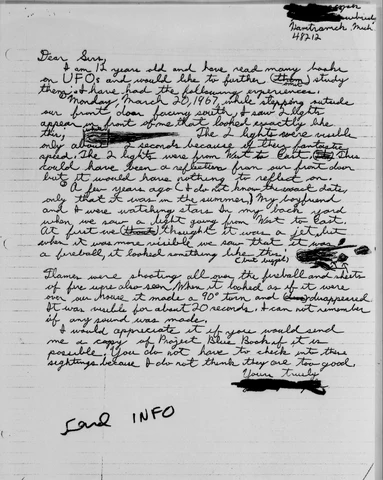 Hamtramck, Mich
48212
Dear Sirs,
I am 12 years old and have read many books
on UFOs and would like to further study
them. I have had the following experiences.
Monday, March 20, 1967, while stepping outside
our front door facing south, I saw 2 lights
appear in front of me that looked exactly like
this, The 2 lights were visible
only about 2 seconds because of their fantastic
speed. The 2 lights were from West to East. This
could have been a reflection from our front door
but it would have nothing to reflect on.
A few years ago (I do not know the exact date,
only that it was in the summer,) My boyfriend
and I were watching stars in my back yard
when we saw a light going from West to East.
At first we thought it was a jet, but
when it was more visible we saw that it was
a fireball, it looked something like this:
Flames were shooting all over the fireball and sheets
of fire were also seen. When it looked as if it were
over our house it made a 90° turn and disappeared
It was visible for about 20 seconds. I can not remember
if any sound was made.
I would appreciate it if you would send
me a copy of Project Blue Book if it is
possible. You do not have to check into these
sightings because I do not think they are too good.
Yours truly
Send INFO